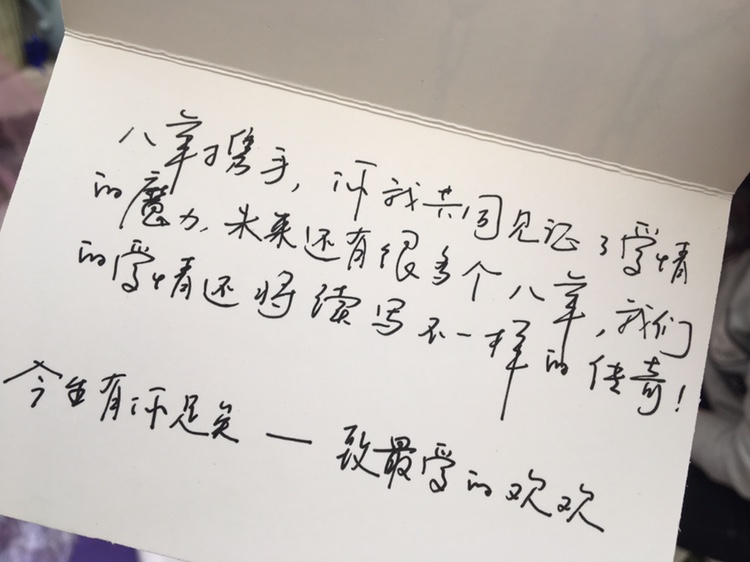 八年携手，你我共同见证了爱情
的魔力，未来还有很多个八年，我们
的爱情还将续写不一样的传奇！
今生有你足矣 — 致最爱的欢欢